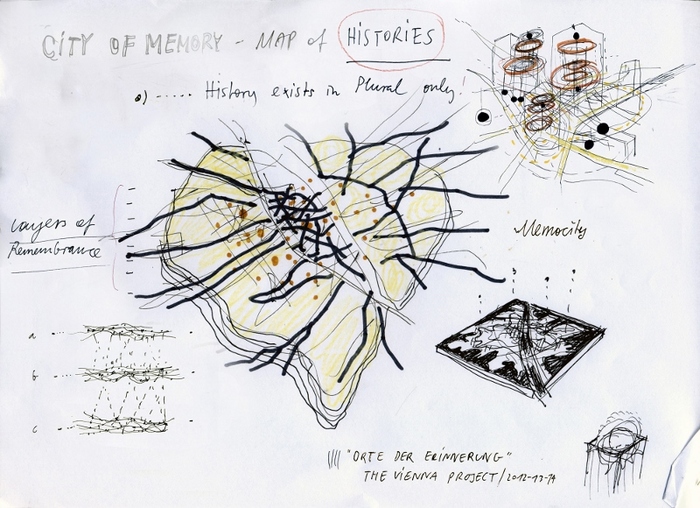 CITY OF MEMORY - MAP of HISTORIES
a) ..... History exists in Plural only!
Layers of
Remembrance
Memocity
a
b
c
"ORTE DER ERINNERUNG"
THE VIENNA PROJECT/2012-13-14